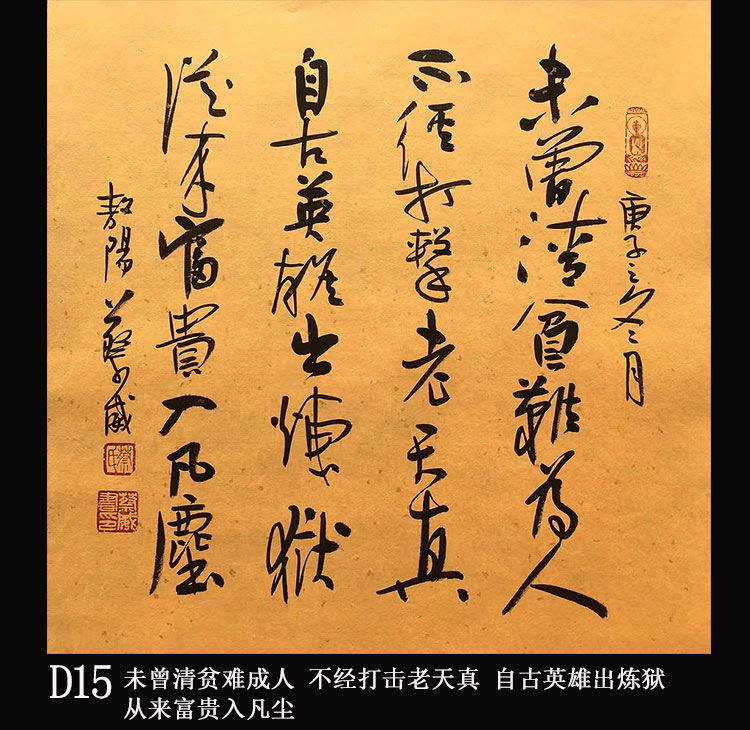 庚子之冬
未曾清貧難為人
不經打擊老天真
自古英雄出煉獄
從來富貴入凡塵
敖陽蔡威
蔡氏
蔡威書印
D15 未曾清贫难成人 不经打击老天真 自古英雄出炼狱
从来富贵入凡尘